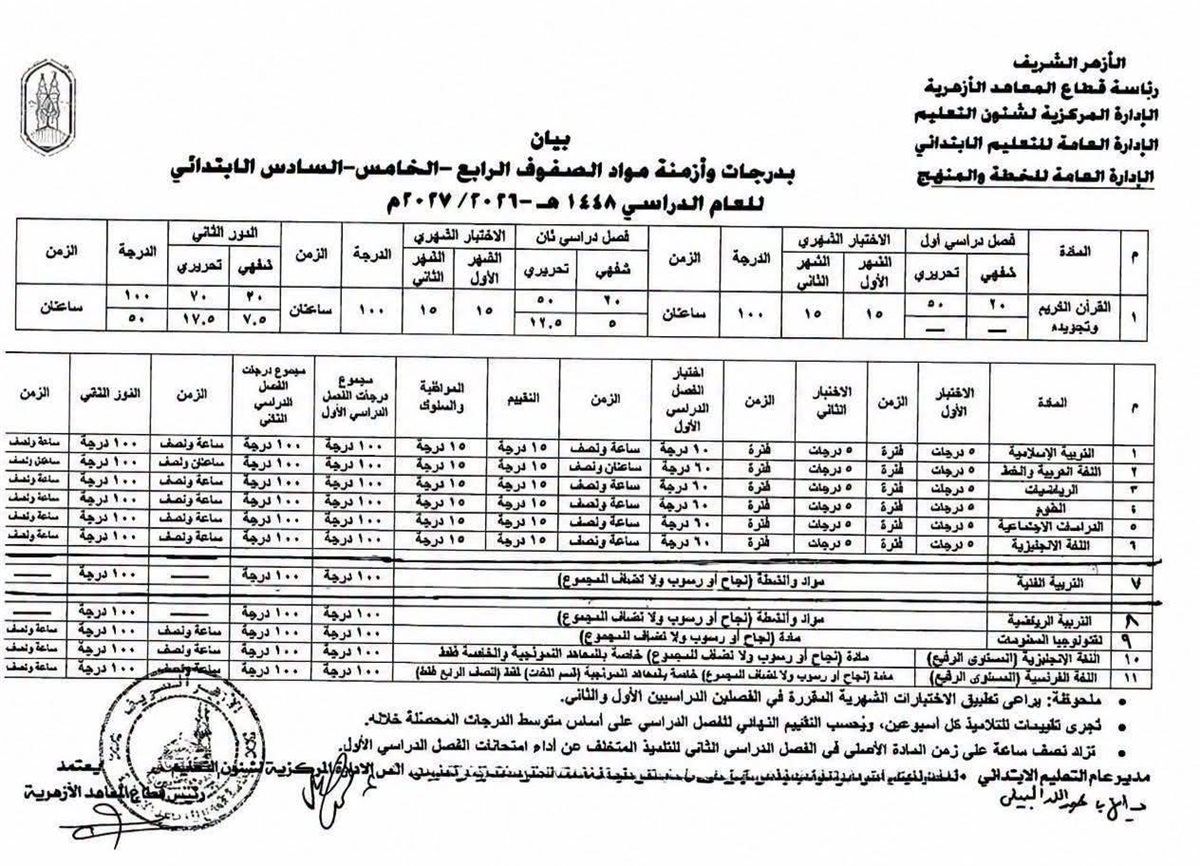 الأزهر الشريف
رئاسة قطاع المعاهد الأزهرية
الإدارة المركزية لشئون التعليم
الإدارة العامة للتعليم الابتدائي
الإدارة العامة للخطة والمنهج
بيان
بدرجات وأزمنة مواد الصفوف الرابع -الخامس-السادس الابتدائي
للعام الدراسي ١٤٤٨ هـ -٢٠٢٦/ ٢٠٢٧م
م المادة فصل دراسي أول الاختبار الشهري الدرجة الزمن فصل دراسي ثان الاختبار الشهري الدرجة الزمن الدور الثاني الدرجة الزمن
شفهي تحريري الشهر الأول الشهر الثاني شفهي تحريري الشهر الأول الشهر الثاني شفهي تحريري
١ القرآن الكريم وتجويده ٢٠ ٥٠ ١٥ ١٥ ١٠٠ ساعتان ٢٠ ٥٠ ١٥ ١٥ ١٠٠ ساعتان ٣٠ ٧٠ ١٠٠ ساعتان
— — ٥ ١٢.٥ ٧.٥ ١٧.٥ ٥٠
م المادة الاختبار الأول الزمن الاختبار الثاني الزمن اختبار الفصل الدراسي الأول الزمن التقييم المواظبة والسلوك مجموع درجات الفصل الدراسي الأول مجموع درجات الفصل الدراسي الثاني الزمن الدور الثاني الزمن
١ التربية الإسلامية ٥ درجات فترة ٥ درجات فترة ٦٠ درجة ساعة ونصف ١٥ درجة ١٥ درجة ١٠٠ درجة ١٠٠ درجة ساعة ونصف ١٠٠ درجة ساعة ونصف
٢ اللغة العربية والخط ٥ درجات فترة ٥ درجات فترة ٦٠ درجة ساعتان ونصف ١٥ درجة ١٥ درجة ١٠٠ درجة ١٠٠ درجة ساعتان ونصف ١٠٠ درجة ساعتان ونصف
٣ الرياضيات ٥ درجات فترة ٥ درجات فترة ٦٠ درجة ساعة ونصف ١٥ درجة ١٥ درجة ١٠٠ درجة ١٠٠ درجة ساعة ونصف ١٠٠ درجة ساعة ونصف
٤ العلوم ٥ درجات فترة ٥ درجات فترة ٦٠ درجة ساعة ونصف ١٥ درجة ١٥ درجة ١٠٠ درجة ١٠٠ درجة ساعة ونصف ١٠٠ درجة ساعة ونصف
٥ الدراسات الاجتماعية ٥ درجات فترة ٥ درجات فترة ٦٠ درجة ساعة ونصف ١٥ درجة ١٥ درجة ١٠٠ درجة ١٠٠ درجة ساعة ونصف ١٠٠ درجة ساعة ونصف
٦ اللغة الإنجليزية ٥ درجات فترة ٥ درجات فترة ٦٠ درجة ساعة ونصف ١٥ درجة ١٥ درجة ١٠٠ درجة ١٠٠ درجة ساعة ونصف ١٠٠ درجة ساعة ونصف
٧ التربية الفنية مواد وأنشطة (نجاح أو رسوب ولا تضاف للمجموع) ١٠٠ درجة ١٠٠ درجة — ١٠٠ درجة —
٨ التربية الرياضية مواد وأنشطة (نجاح أو رسوب ولا تضاف للمجموع) ١٠٠ درجة ١٠٠ درجة — ١٠٠ درجة —
٩ تكنولوجيا المعلومات مادة (نجاح أو رسوب ولا تضاف للمجموع) ١٠٠ درجة ١٠٠ درجة ساعة ونصف ١٠٠ درجة ساعة ونصف
١٠ اللغة الإنجليزية (المستوى الرفيع) مادة (نجاح أو رسوب ولا تضاف للمجموع) خاصة بالمعاهد النموذجية والخاصة فقط ١٠٠ درجة ١٠٠ درجة ساعة ونصف ١٠٠ درجة ساعة ونصف
١١ اللغة الفرنسية (المستوى الرفيع) مادة (نجاح أو رسوب ولا تضاف للمجموع) خاصة بالمعاهد النموذجية (قسم اللغات) فقط (للصف الرابع فقط) ١٠٠ درجة ١٠٠ درجة ساعة ونصف ١٠٠ درجة ساعة ونصف
• ملحوظة: يراعى تطبيق الاختبارات الشهرية المقررة في الفصلين الدراسيين الأول والثاني.
• تجرى تقييمات للتلاميذ كل أسبوعين، ويُحسب التقييم النهائي للفصل الدراسي على أساس متوسط الدرجات المحصّلة خلاله.
• تزاد نصف ساعة على زمن المادة الأصلي في الفصل الدراسي الثاني للتلميذ المتخلف عن أداء امتحانات الفصل الدراسي الأول.
مدير عام التعليم الابتدائي
الإدارة المركزية لشئون التعليم
يعتمد
رئيس قطاع المعاهد الأزهرية
الأزهر الشريف